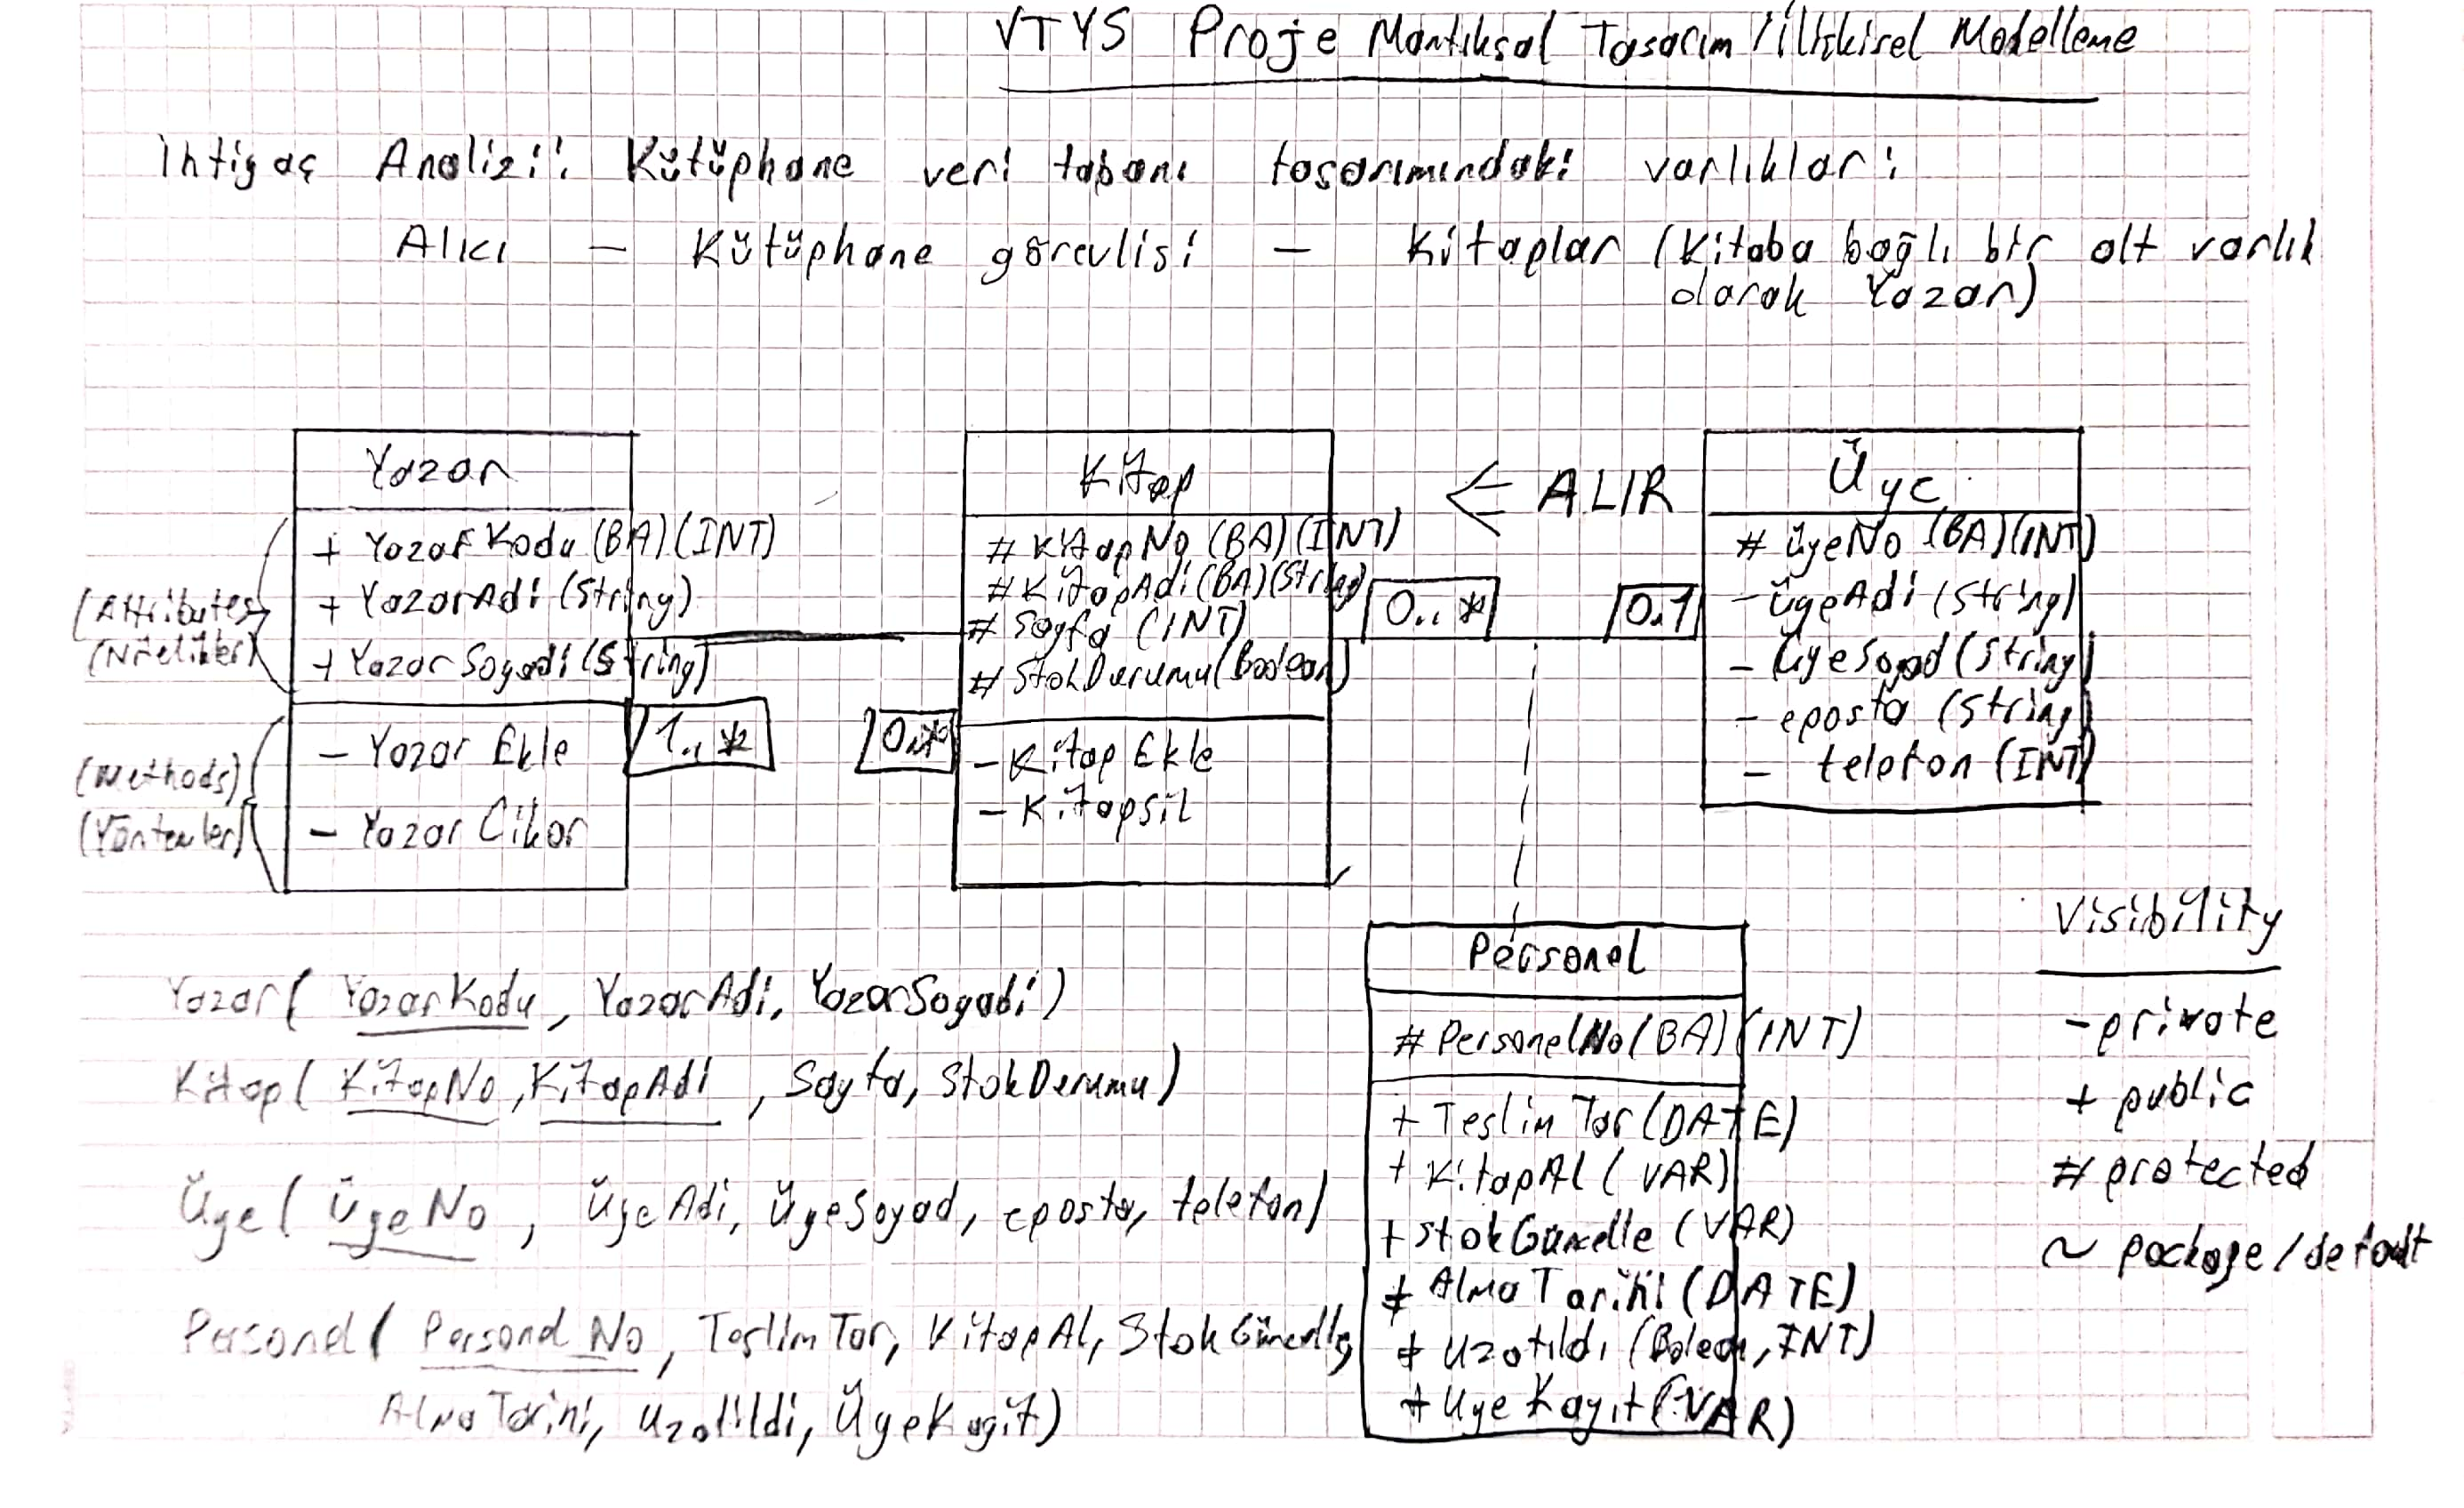 VTYS Proje Mantıksal Tasarım / İlişkisel Modelleme
İhtiyaç Analizi: Kütüphane veri tabanı tasarımındaki varlıklar:
Alıcı — Kütüphane görevlisi — Kitaplar (Kitaba bağlı bir alt varlık
olarak Yazar)
Yazar
(Attributes)
(Nitelikler)
+ YazarKodu (BA)(INT)
+ YazarAdi (String)
+ YazarSoyadi (String)
(Methods)
(Yöntemler)
- Yazar Ekle
- Yazar Cikar
1..*
0..*
Kitap
# KitapNo (BA)(INT)
# KitapAdi (BA)(String)
# Sayfa (INT)
# StokDurumu (Boolean)
- Kitap Ekle
- Kitapsil
< ALIR
0..*
0..1
Üye
# üyeNo (BA)(INT)
- üyeAdi (String)
- üyeSoyad (String)
- eposta (String)
- telefon (INT)
Personel
# PersonelNo (BA)(INT)
+ Teslim Tar (DATE)
+ KitapAl (VAR)
+ StokGüncelle (VAR)
+ Alma Tarihi (DATE)
+ Uzatıldı (Bolean, INT)
+ Uye Kayıt (VAR)
Visibility
- private
+ public
# protected
~ package/default
Yazar( YazarKodu, YazarAdi, YazarSoyadi)
Kitap( KitapNo, KitapAdi, Sayfa, StokDurumu)
Üye( ÜyeNo, ÜyeAdi, ÜyeSoyad, eposta, telefon)
Personel( Personel No, Teslim Tar, KitapAl, StokGüncelle,
Alma Tarihi, Uzatildi, ÜyeKayit)